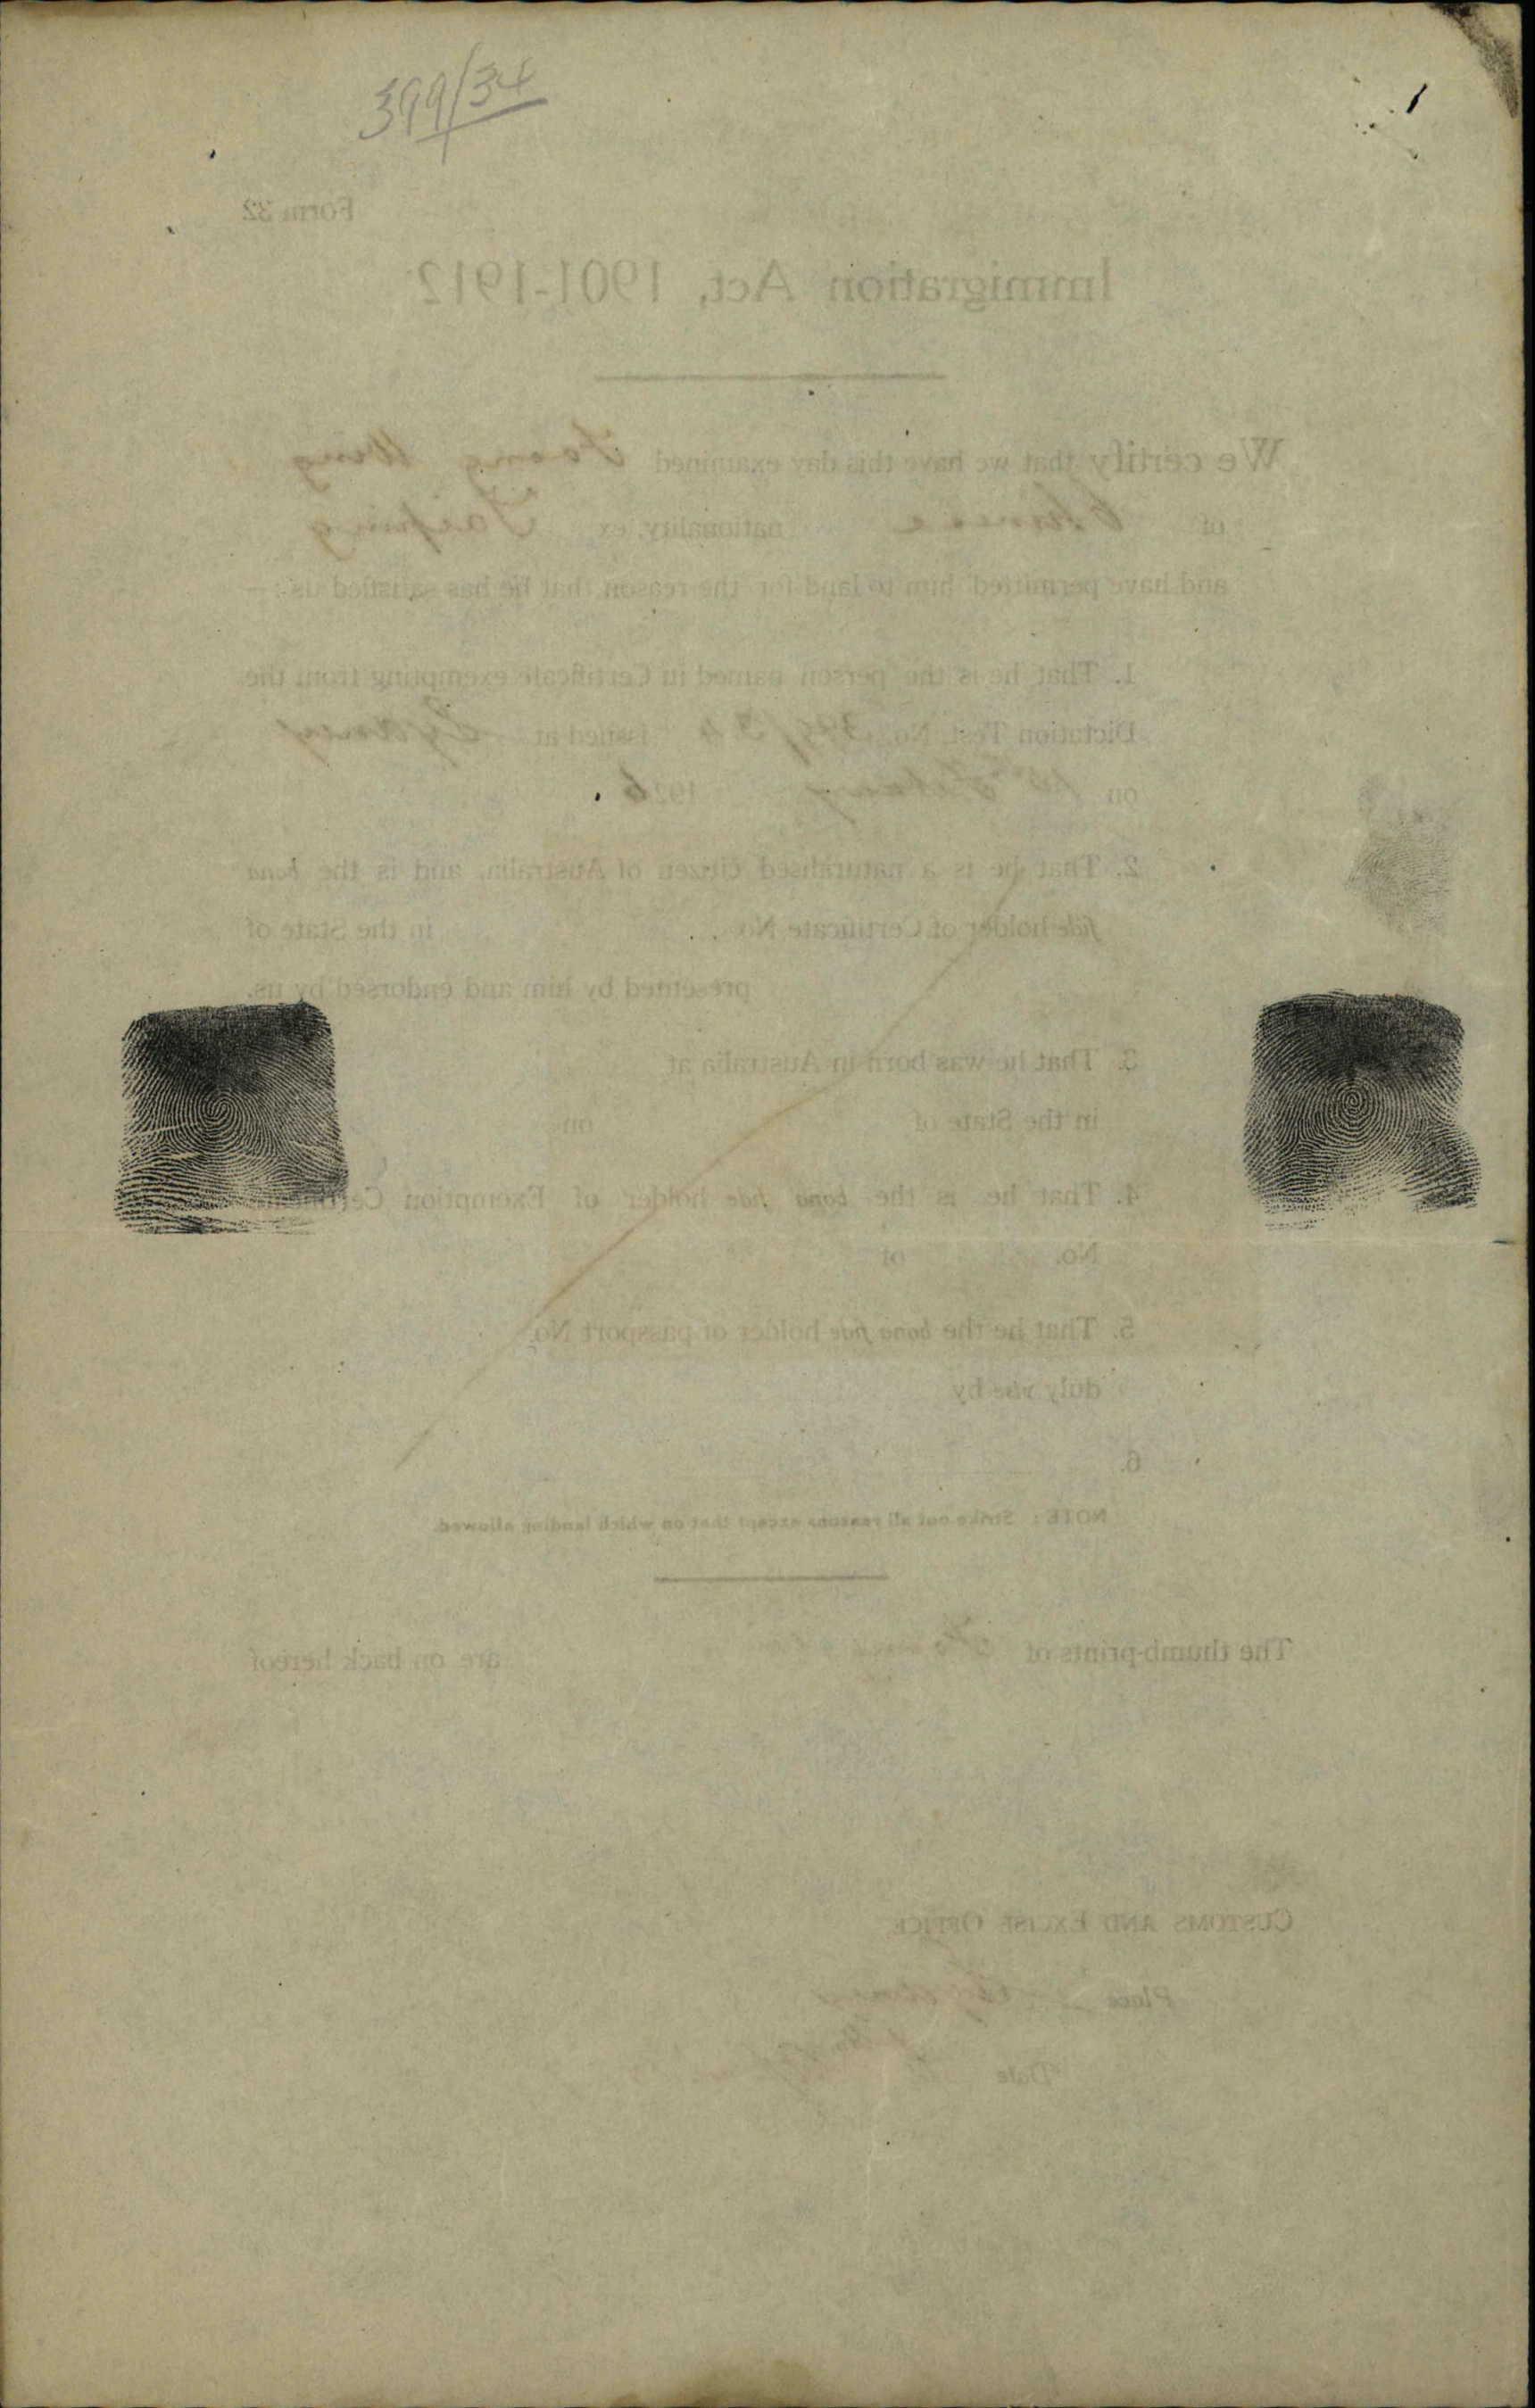 399/34
Form 32
Immigration Act, 1901-1912
We certify that we have this day examined
of Chinese nationality, ex Taiping
and have permitted him to land for the reason that he has satisfied us:—
1. That he is the person named in Certificate exempting from the
Dictation Test, No. 399/34 issued at Sydney
on 1926.
2. That he is a naturalised citizen of Australia, and is the bona
fide holder of Certificate No. in the State of
presented by him and endorsed by us.
3. That he was born in Australia at
in the State of on
4. That he is the bona fide holder of Exemption Certificate
No. of
5. That he the bona fide holder of passport No.
duly vise by
6.
NOTE: Strike out all reasons except that on which landing allowed.
The thumb-prints of are on back hereof
CUSTOMS AND EXCISE OFFICE
Place Sydney
Date